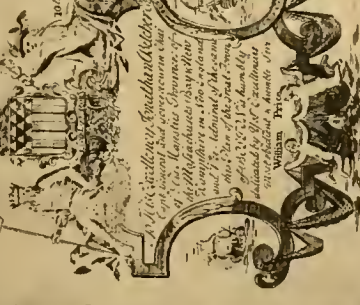 To His Excellency Jonathan Belcher
Esqr. Captain General and Governour in Chief
of His Majesties Province of
the Massachusetts Bay & New
Hampshire in New England
and Vice Admiral of the same
this
of
is humbly
Dedicated by Your Excellencys
most obedient & humble Servt
William Price